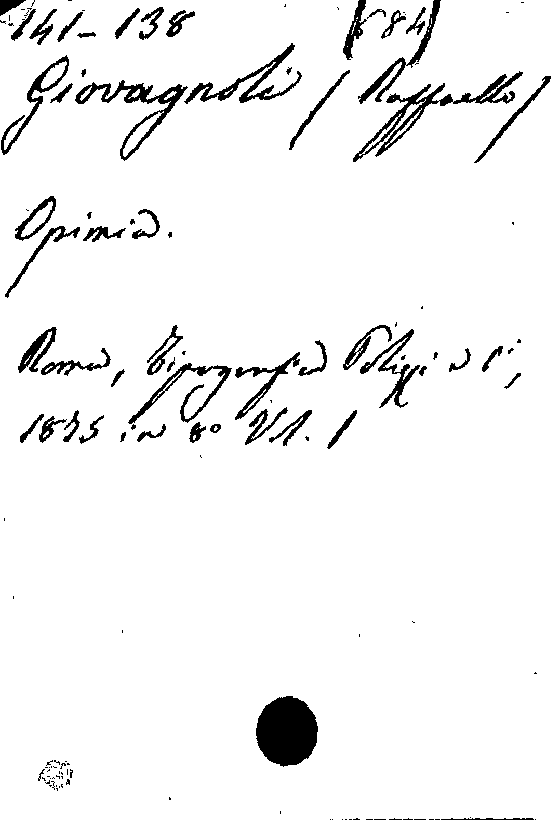 141-138 (684)
Giovagnoli (Raffaello)
Opimia.
Roma, Tipografia Polizzi e Ci,
1875 in 8° Vol. 1